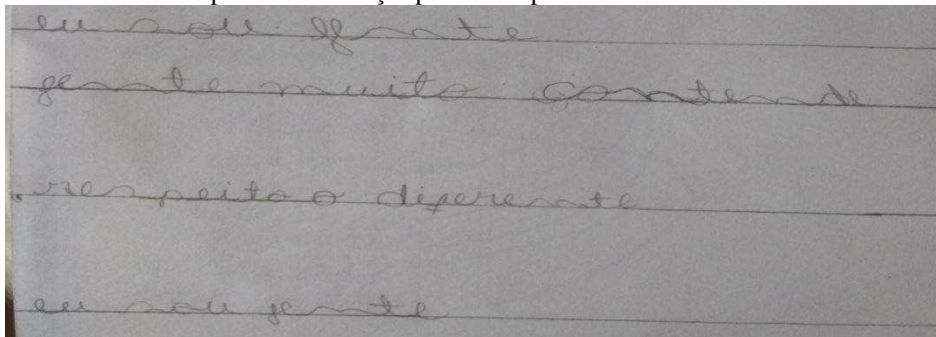 eu sou gente
gente muito contende
respeito o diperente
eu sou gente